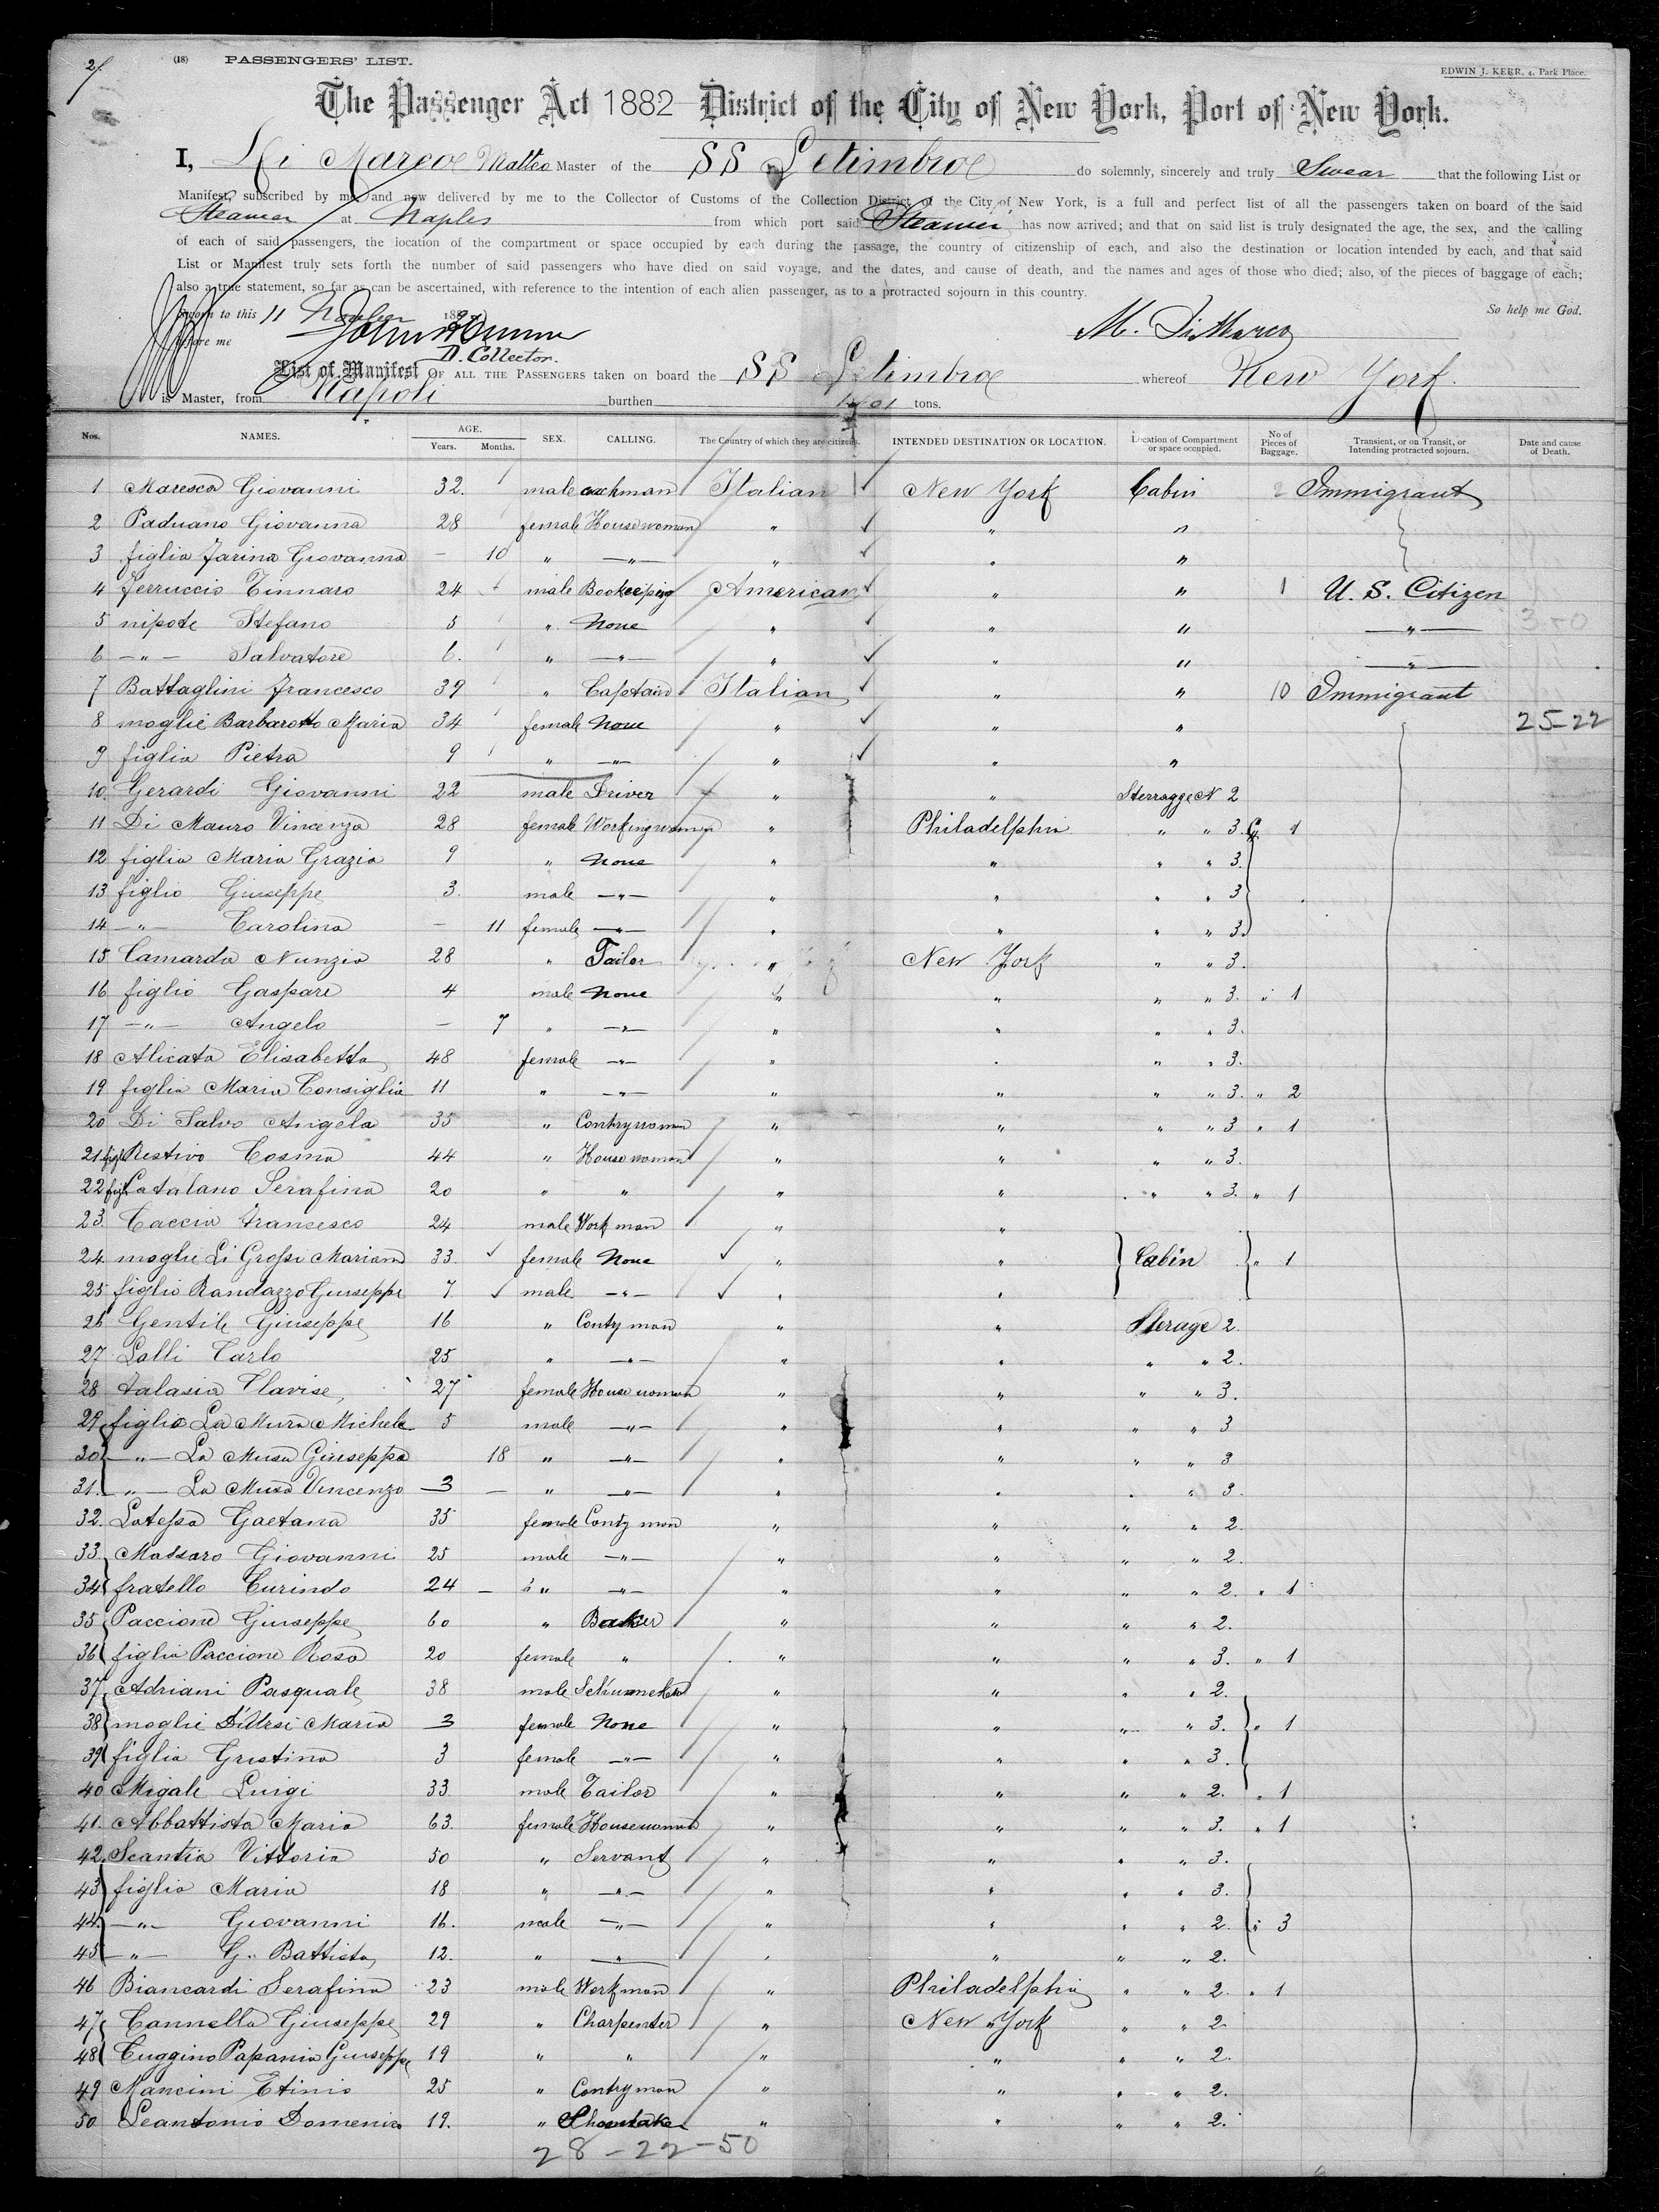 2/.
(18) PASSENGERS' LIST.
EDWIN J. KERR, 4, Park Place.
The Passenger Act 1882 District of the City of New York, Port of New York.
I, Di Marco Matteo Master of the SS Letimbro do solemnly, sincerely and truly Swear that the following List or
Manifest, subscribed by me and now delivered by me to the Collector of Customs of the Collection District of the City of New York, is a full and perfect list of all the passengers taken on board of the said
Steamer at Naples from which port said Steamer has now arrived; and that on said list is truly designated the age, the sex, and the calling
of each of said passengers, the location of the compartment or space occupied by each during the passage, the country of citizenship of each, and also the destination or location intended by each, and that said
List or Manifest truly sets forth the number of said passengers who have died on said voyage, and the dates, and cause of death, and the names and ages of those who died; also, of the pieces of baggage of each;
also a true statement, so far as can be ascertained, with reference to the intention of each alien passenger, as to a protracted sojourn in this country.
Sworn to this 11 188 So help me God.
before me M. Di Marco
D. Collector.
List of Manifest OF ALL THE PASSENGERS taken on board the SS Letimbro whereof New York
is Master, from Napoli burthen tons.
Nos. NAMES. AGE. Years. Months. SEX. CALLING. The Country of which they are citizens. INTENDED DESTINATION OR LOCATION. Location of Compartment or space occupied. No of Pieces of Baggage. Transient, or on Transit, or Intending protracted sojourn. Date and cause of Death.
1 Maresca Giovanni 32. male coachman Italian New York Cabin 2 Immigrant
2 Paduano Giovanna 28 female Housewoman " " "
3 figlia Farina Giovanna – 10 " –"– " " "
4 Ferruccio Tinnaro 24 male Bookeeping American " " 1 U. S. Citizen
5 nipote Stefano 5 " None " " " –"–
6 –"– Salvatore 6. " –"– " " " –"–
7 Battaglini Francesco 39 " Captain Italian " " 10 Immigrant
8 moglie Barbarotto Maria 34 female None " " " 25-22
9 figlia Pietra 9 " –"– " " "
10. Gerardi Giovanni 22 male Driver " " Sterragge N 2
11 Di Mauro Vincenza 28 female Workingwoman " Philadelphia " " 3. 1
12 figlia Maria Grazia 9 " None " " " " 3.
13 figlio Giuseppe 3. male –"– " " " " 3
14 –"– Carolina – 11 female –"– " " " " 3.
15 Camarda Nunzia 28 " Tailor " New York " " 3.
16 figlio Gaspare 4 male None " " " " 3. " 1
17 –"– Angelo – 7 " –"– " " " " 3.
18 Alicata Elisabetta 48 female –"– " " " " 3.
19 figlia Maria Consiglia 11 " –"– " " " " 3. " 2
20 Di Salvo Angela 35 " Contrywoman " " " " 3 " 1
21 Restivo Cosima 44 " Housewoman " " " " 3.
22 figl Catalano Serafina 20 " " " " " " 3. " 1
23. Caccia Francesco 24 male Workman " "
24. moglie Li Grossi Mariana 33. female None " " Cabin " 1
25. figlio Randazzo Giuseppe 7. male –"– " "
26 Gentile Giuseppe 16 " Contyman " " Sterage 2.
27 Lalli Carlo 25 " –"– " " " " 2.
28 Talasia Clavise, 27 female Housewoman " " " " 3.
29 figlio La Mura Michele 5 male –"– " " " " 3
30 –"– La Musa Giuseppa 18 " –"– " " " " 3
31. –"– La Musa Vincenzo 3 – " –"– " " " " 3.
32. Latessa Gaetana 35 female Contyman " " " " 2.
33. Massaro Giovanni 25 male –"– " " " " 2.
34 fratello Curindo 24 – " –"– " " " " 2. " 1
35 Paccione Giuseppe 60 " Baker " " " " 2.
36 figlia Paccione Rosa 20 female " " " " " 3. " 1
37. Adriani Pasquale 38 male " " " " 2.
38 moglie D'Ursi Maria 3 female None " " " " 3. " 1
39 figlia Gristina 3 female –"– " " " " 3.
40 Migale Luigi 33. male Tailor " " " " 2. " 1
41. Abbattista Maria 63. female Housewoman " " " " 3. " 1
42. Scantia Vittoria 50 " Servant " " " " 3.
43 figlia Maria 18 " –"– " " " " 3.
44. –"– Giovanni 16. male –"– " " " " 2. " 3
45 –"– G. Battista 12. " –"– " " " " 2.
46 Biancardi Serafina 23 male Workman " Philadelphia " " 2. " 1
47 Cannella Giuseppe 29 " Charpenter " New York " " 2
48 Cuggino Papania Giuseppe 19 " " " " " " 2.
49 Mancini Etinio 25 " Contryman " " " " 2.
50 Leantonio Domenico 19. " Shoemaker " " " " 2.
28-22-50